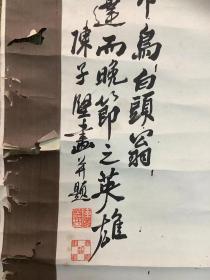 鳥白頭翁
而晚節之英雄
陳子
畫并題